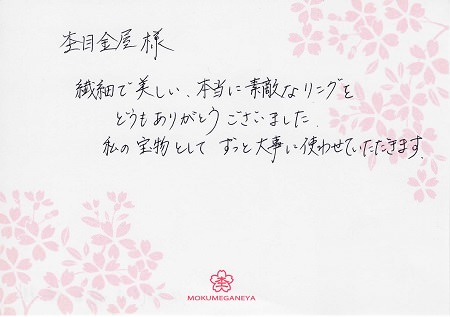 杢目金屋 様
繊細で美しい、本当に素敵なリングを
どうもありがとうございました.
私の宝物として ずっと大事に使わせていただきます.
MOKUMEGANEYA